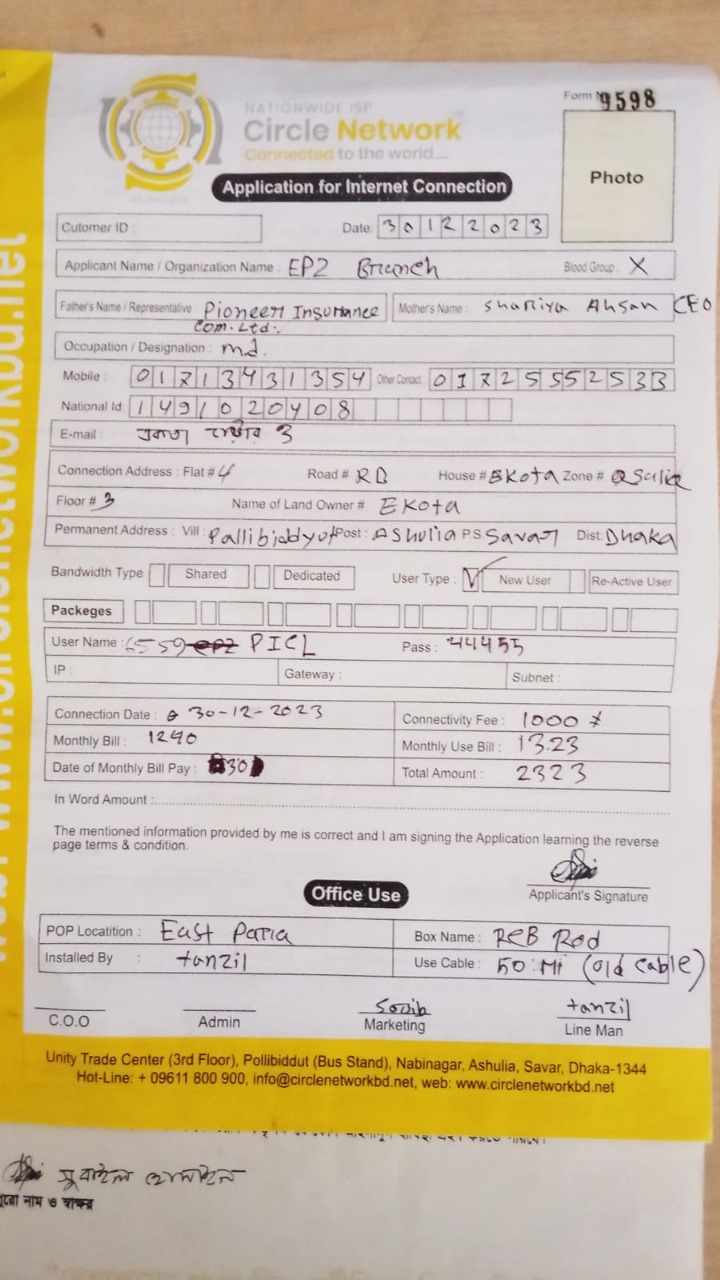 Form N 9598
NATIONWIDE ISP
Circle Network
Connected to the world....
Photo
Application for Internet Connection
Cutomer ID :
Date: 30122023
Applicant Name / Organization Name : EPZ Branch
Blood Group : X
Father's Name / Representative : Pioneer Insurance
Com. Ltd.
Mother's Name : Shariya Ahsan CEO
Occupation / Designation : md.
Mobile : 01713431354 Other Contact 01725552533
National Id: 1491020408
E-mail :
Connection Address : Flat # 4 Road # RD House # Ekota Zone #
Floor # 3 Name of Land Owner # Ekota
Permanent Address : Vill : Pallibiddyut Post : Ashulia P.S. Savar Dist: Dhaka
Bandwidth Type Shared Dedicated User Type : New User Re-Active User
Packeges
User Name : 6559 PICL Pass : 44455
IP : Gateway : Subnet :
Connection Date : 30-12-2023 Connectivity Fee : 1000
Monthly Bill : 1290 Monthly Use Bill : 13.23
Date of Monthly Bill Pay : 30 Total Amount : 2323
In Word Amount :
The mentioned information provided by me is correct and I am signing the Application learning the reverse
page terms & condition.
Applicant's Signature
Office Use
POP Locatition : East Para Box Name : REB Rod
Installed By : tanzil Use Cable : 50 : Mi (old cable)
tanzil
C.O.O Admin Marketing Line Man
Unity Trade Center (3rd Floor), Pollibiddut (Bus Stand), Nabinagar, Ashulia, Savar, Dhaka-1344
Hot-Line: + 09611 800 900, info@circlenetworkbd.net, web: www.circlenetworkbd.net
নাম ও স্বাক্ষর